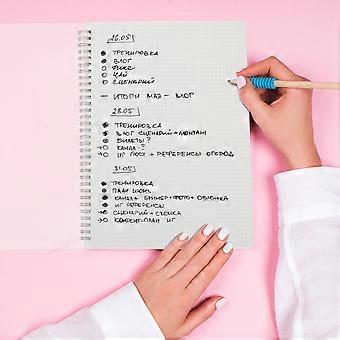 26.05
● ТРЕНИРОВКА
● ВЛОГ
○ ФИКС
○ ЧАЙ
○ СЦЕНАРИЙ
— ИТОГИ МАЯ — ВЛОГ
28.05
● ТРЕНИРОВКА
● ВЛОГ СЦЕНАРИЙ + МОНТАЖ
● БИЛЕТЫ?
→○ КАНАЛ?
→○ ИГ ПОСТ + РЕФЕРЕНСЫ ОГОРОД
31.05
● ТРЕНИРОВКА
● ПЛАН ИЮНЬ
● КАНАЛ + БАННЕР + ФОТО + ОБЛОЖКА
● ИГ РЕФЕРЕНСЫ
→○ СЦЕНАРИЙ + СЪЕМКА
→○ КОНТЕНТ-ПЛАН ИГ